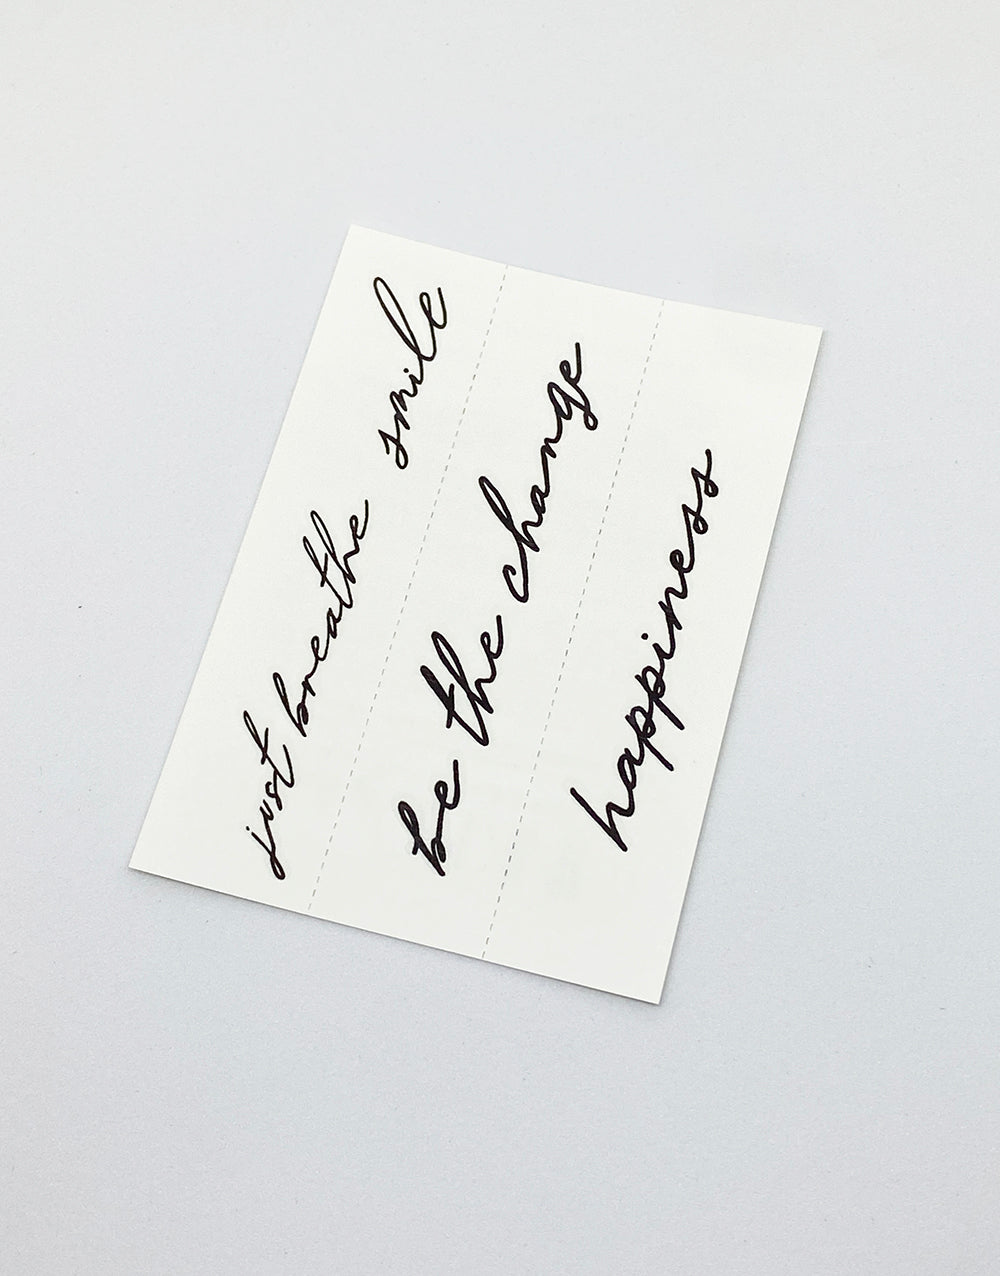 just breathe smile
be the change
happiness